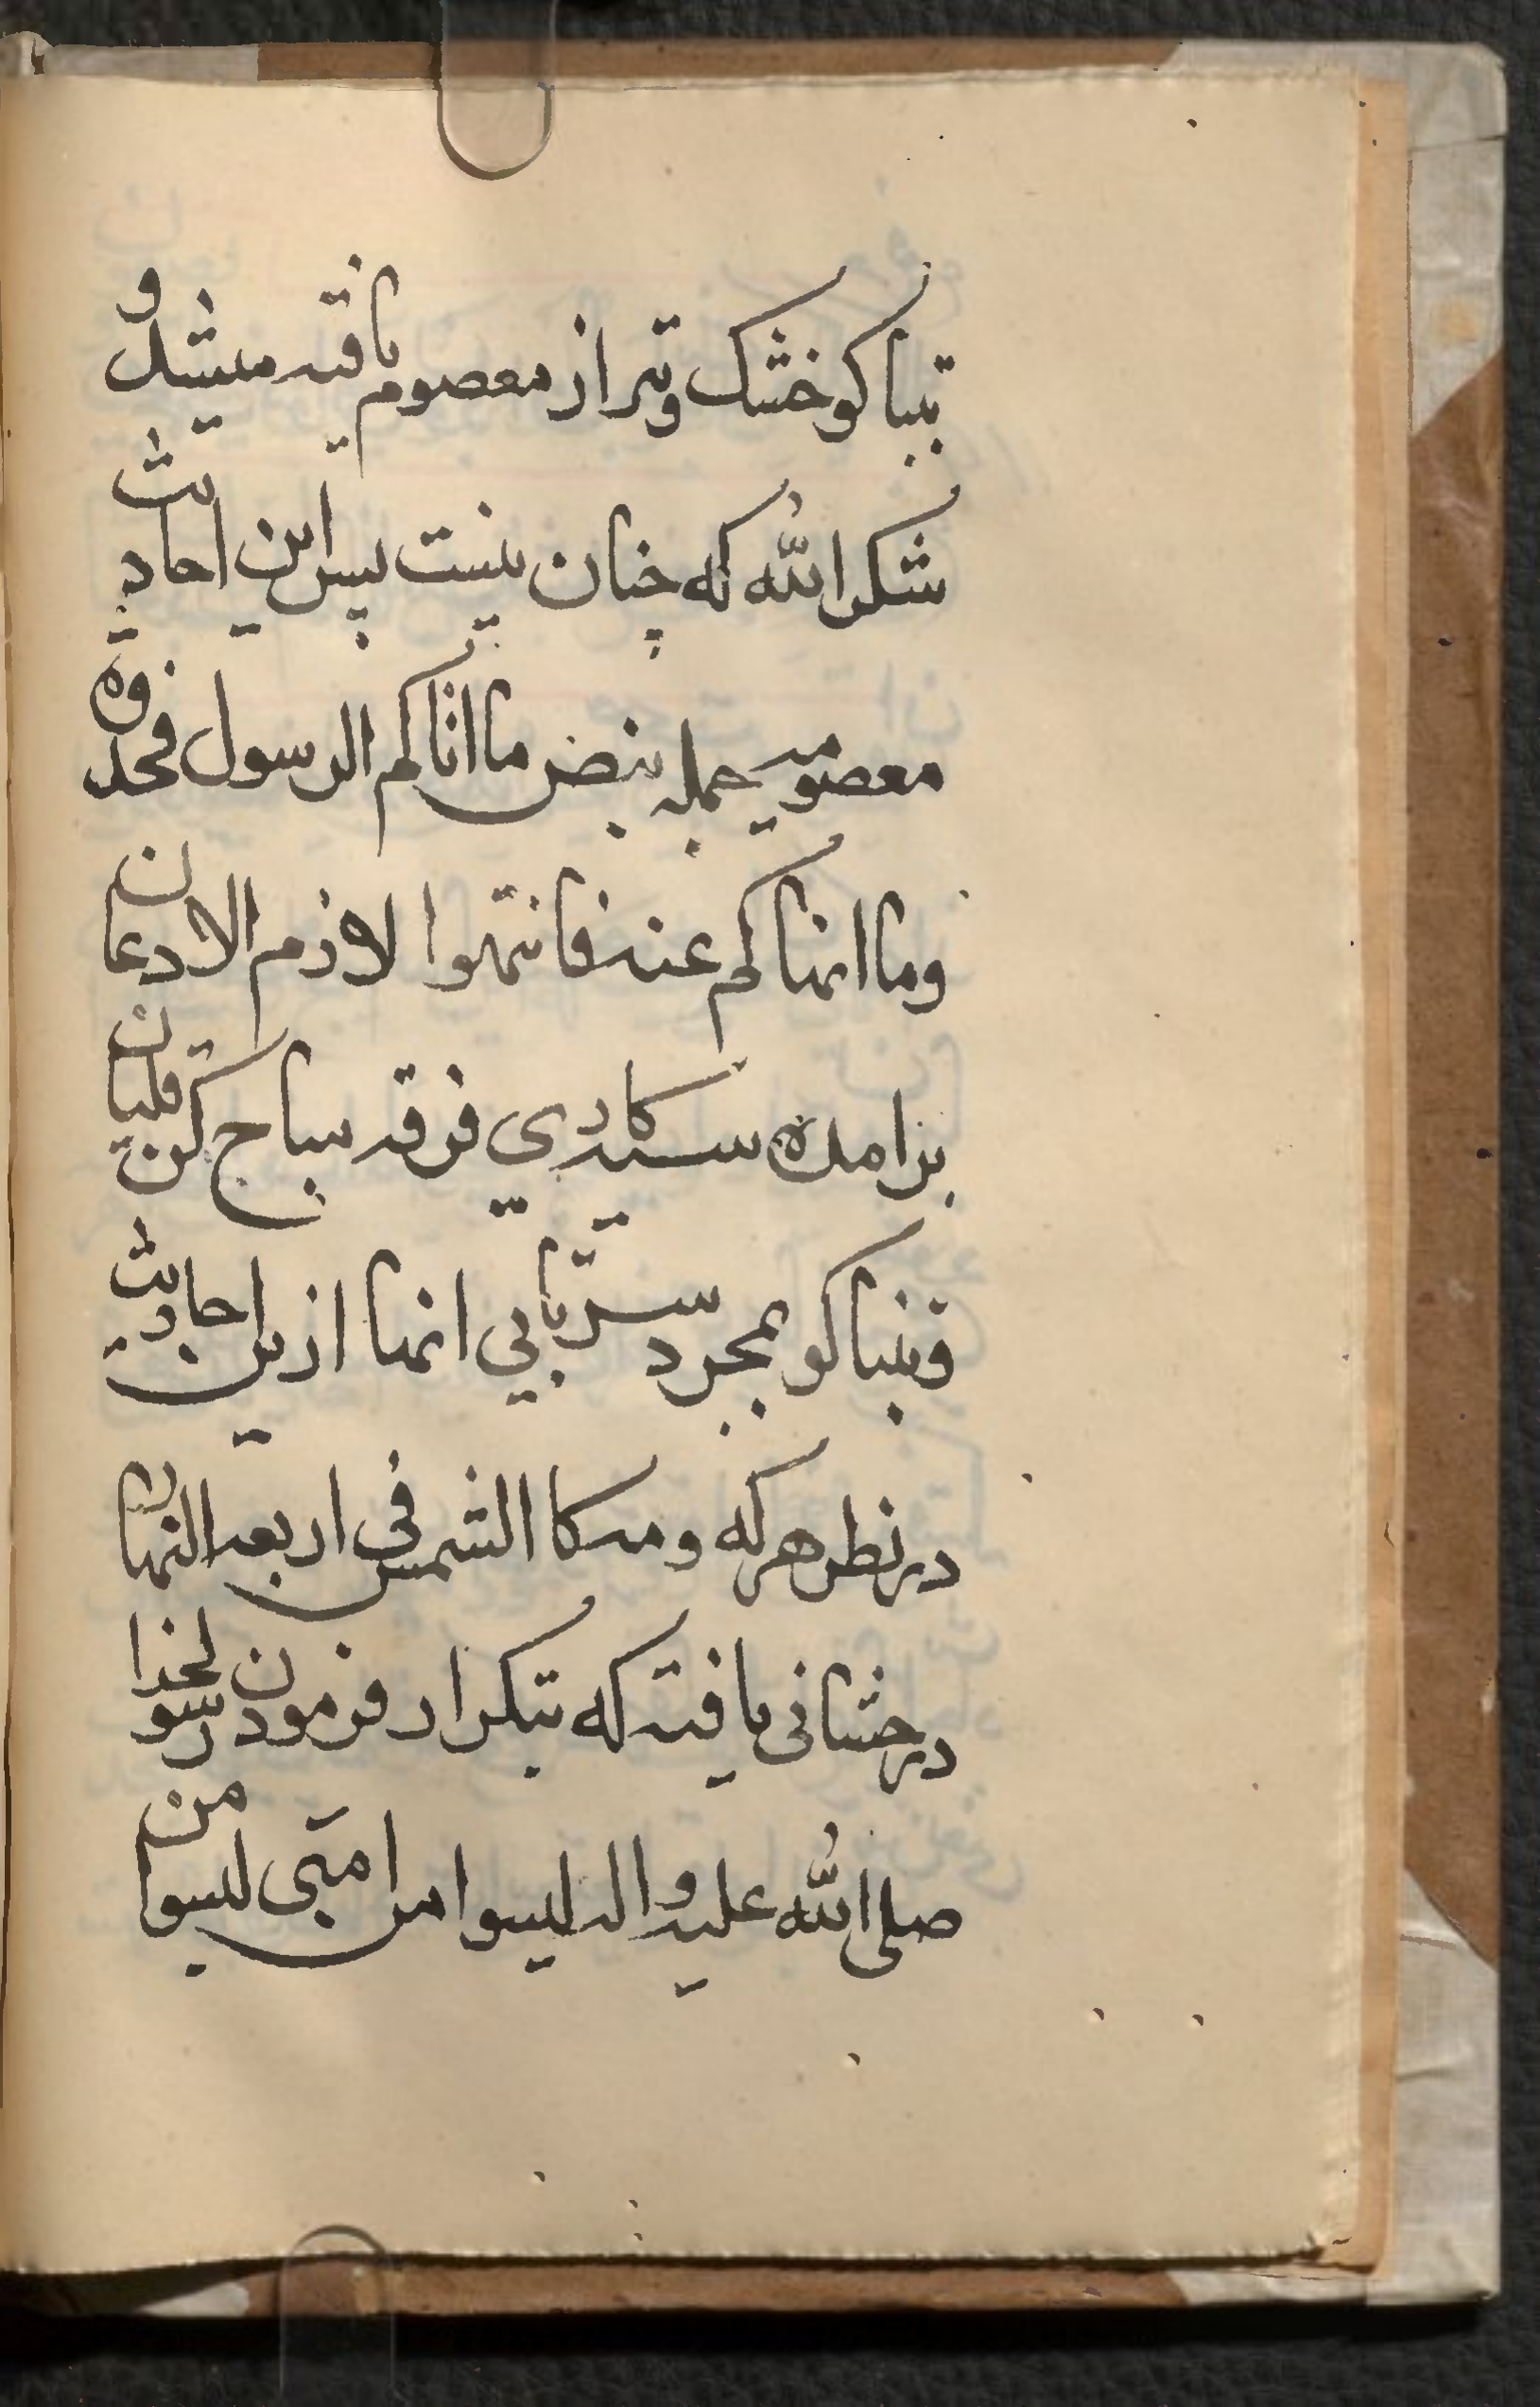 تنباکو خشک و تر از معصوم یافته میشد و
شکرالله که چنان نیست پس این احادیث
معصومیه جمله بنض ما اتاکم الرسول فخذوه
وما انهاکم عنه فانتهوا لاذم الاذعان
بر امده سیه کاری فرقه مباح کن قلیان
و تنباکو بمجرد سرتابی انها ازین احادیث
در نظر هر که ومه کا الشمس فی اربعه النهار
درخشانی یافته که بتکرار فرمودن رسولخدا
صلی الله علیه واله لیسوا من امتی لیسوا من